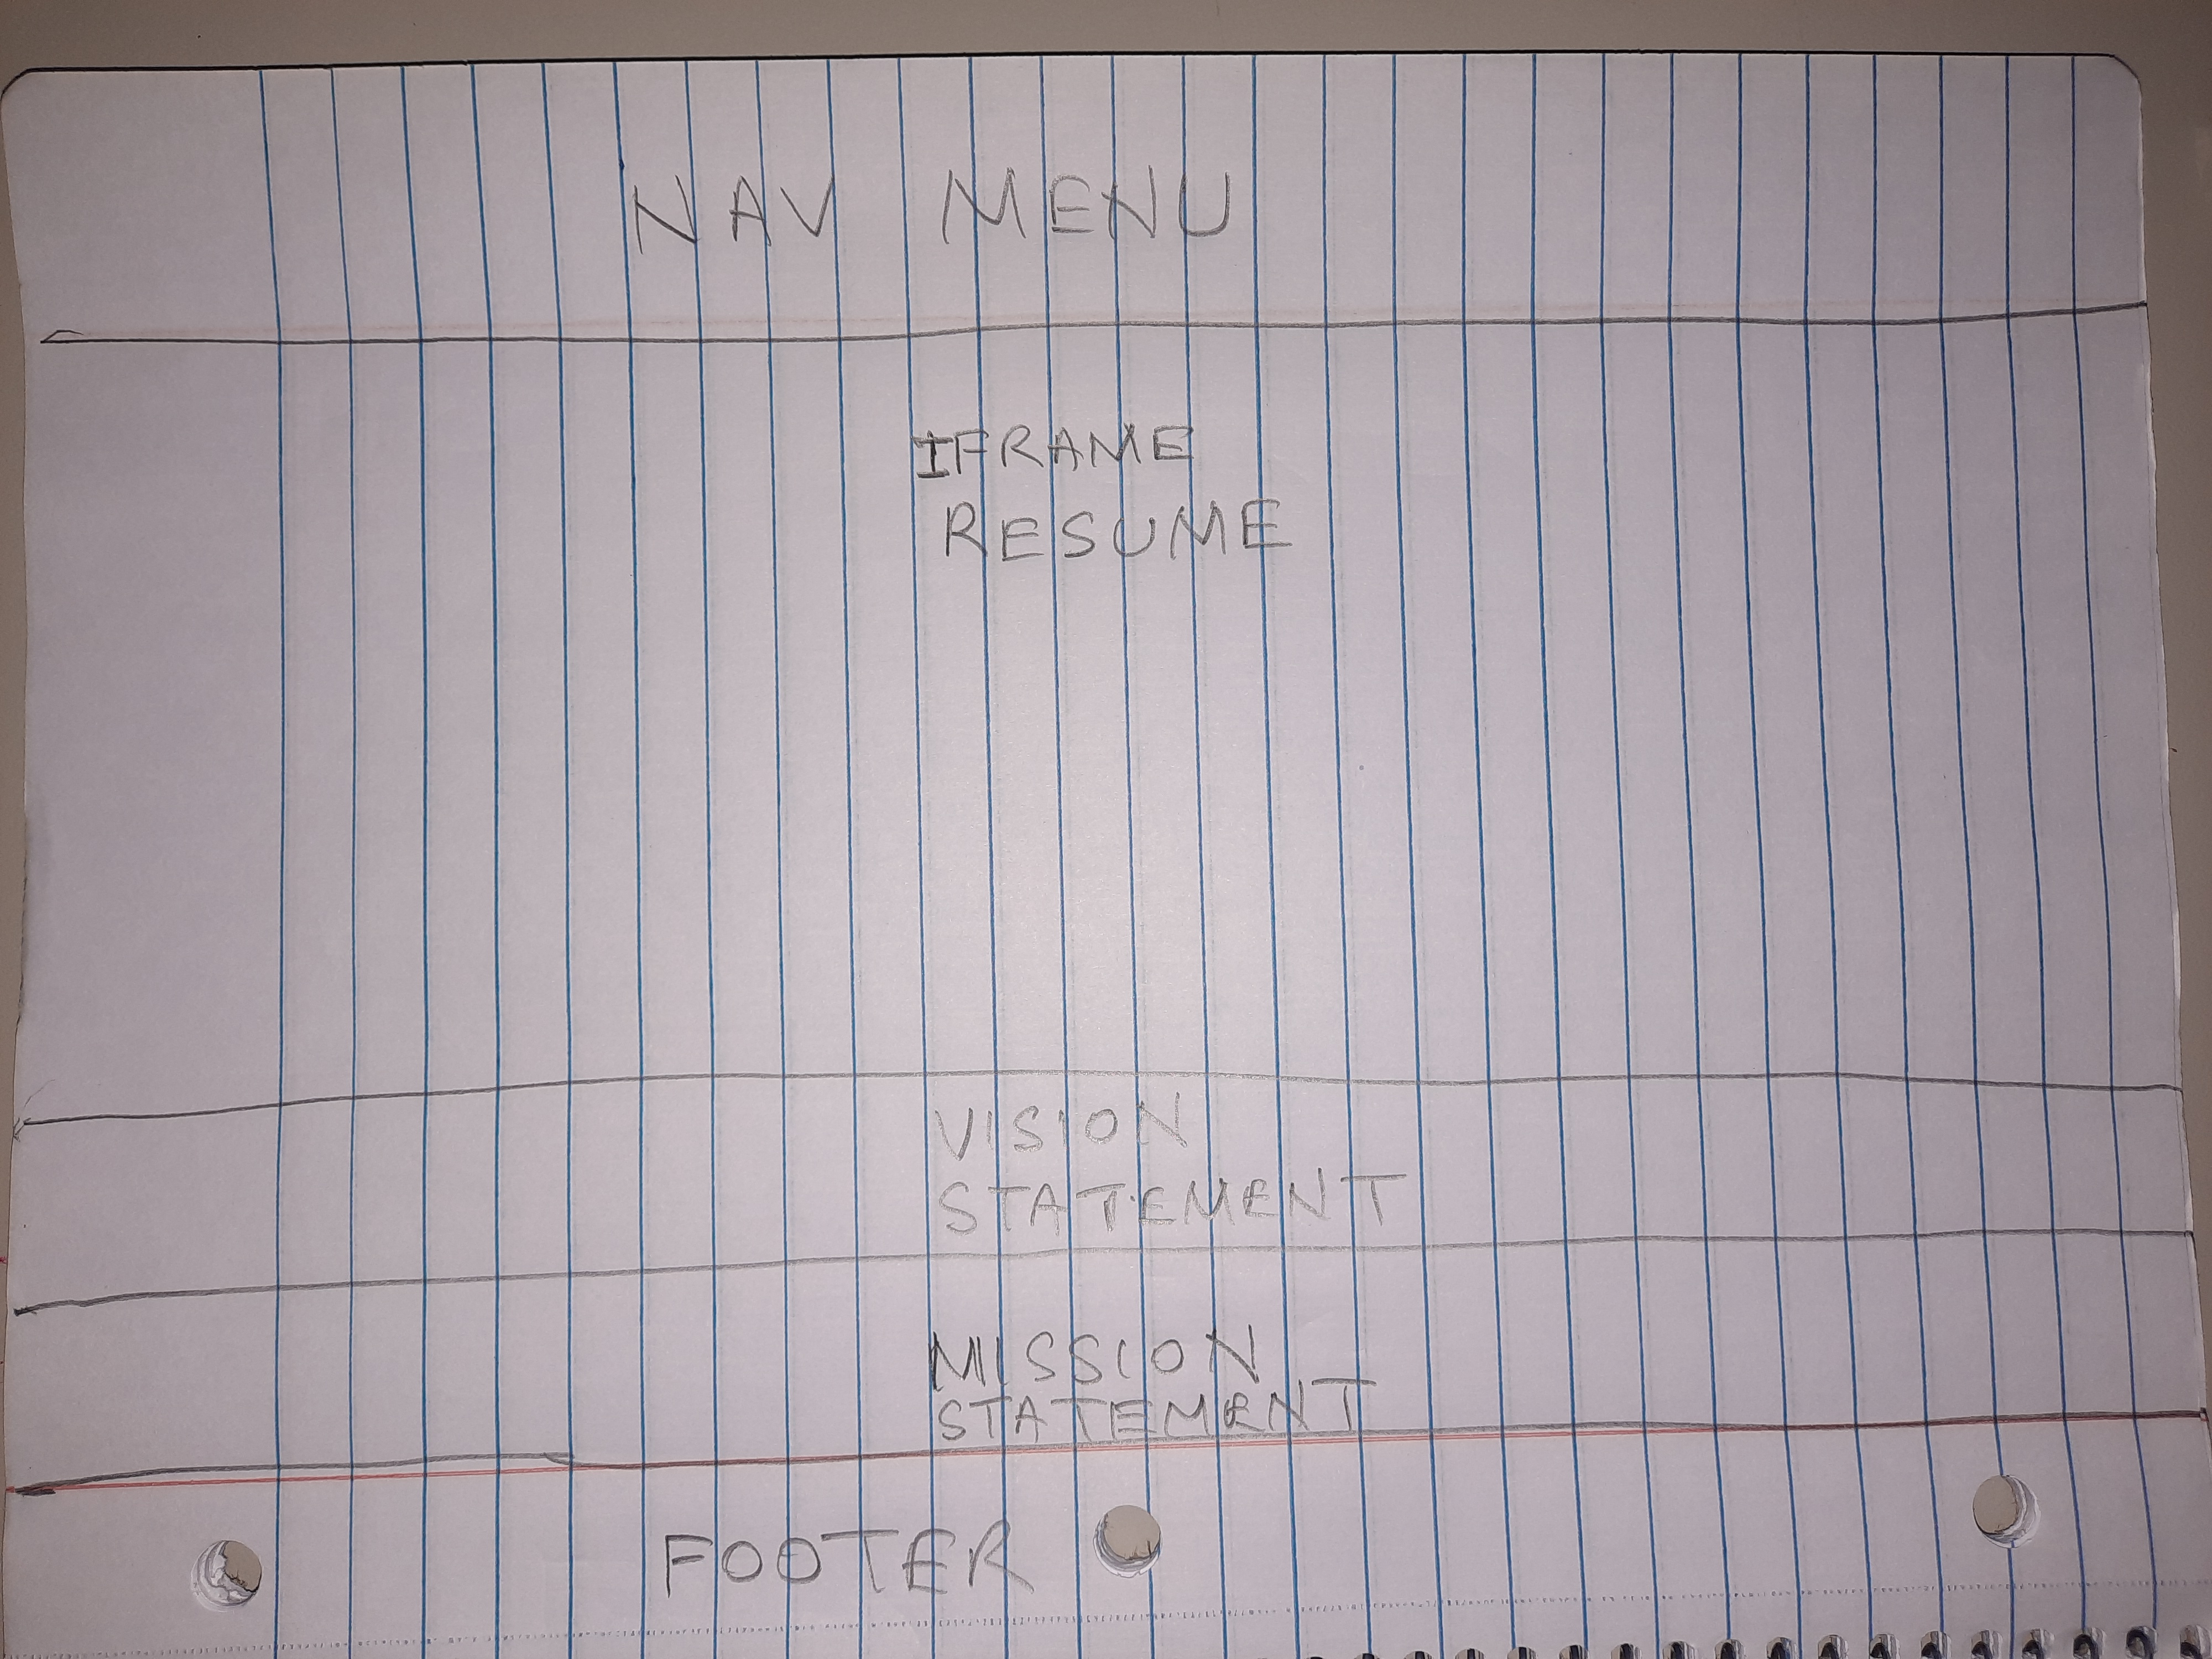 NAV MENU
IFRAME
RESUME
VISION
STATEMENT
MISSION
STATEMENT
FOOTER